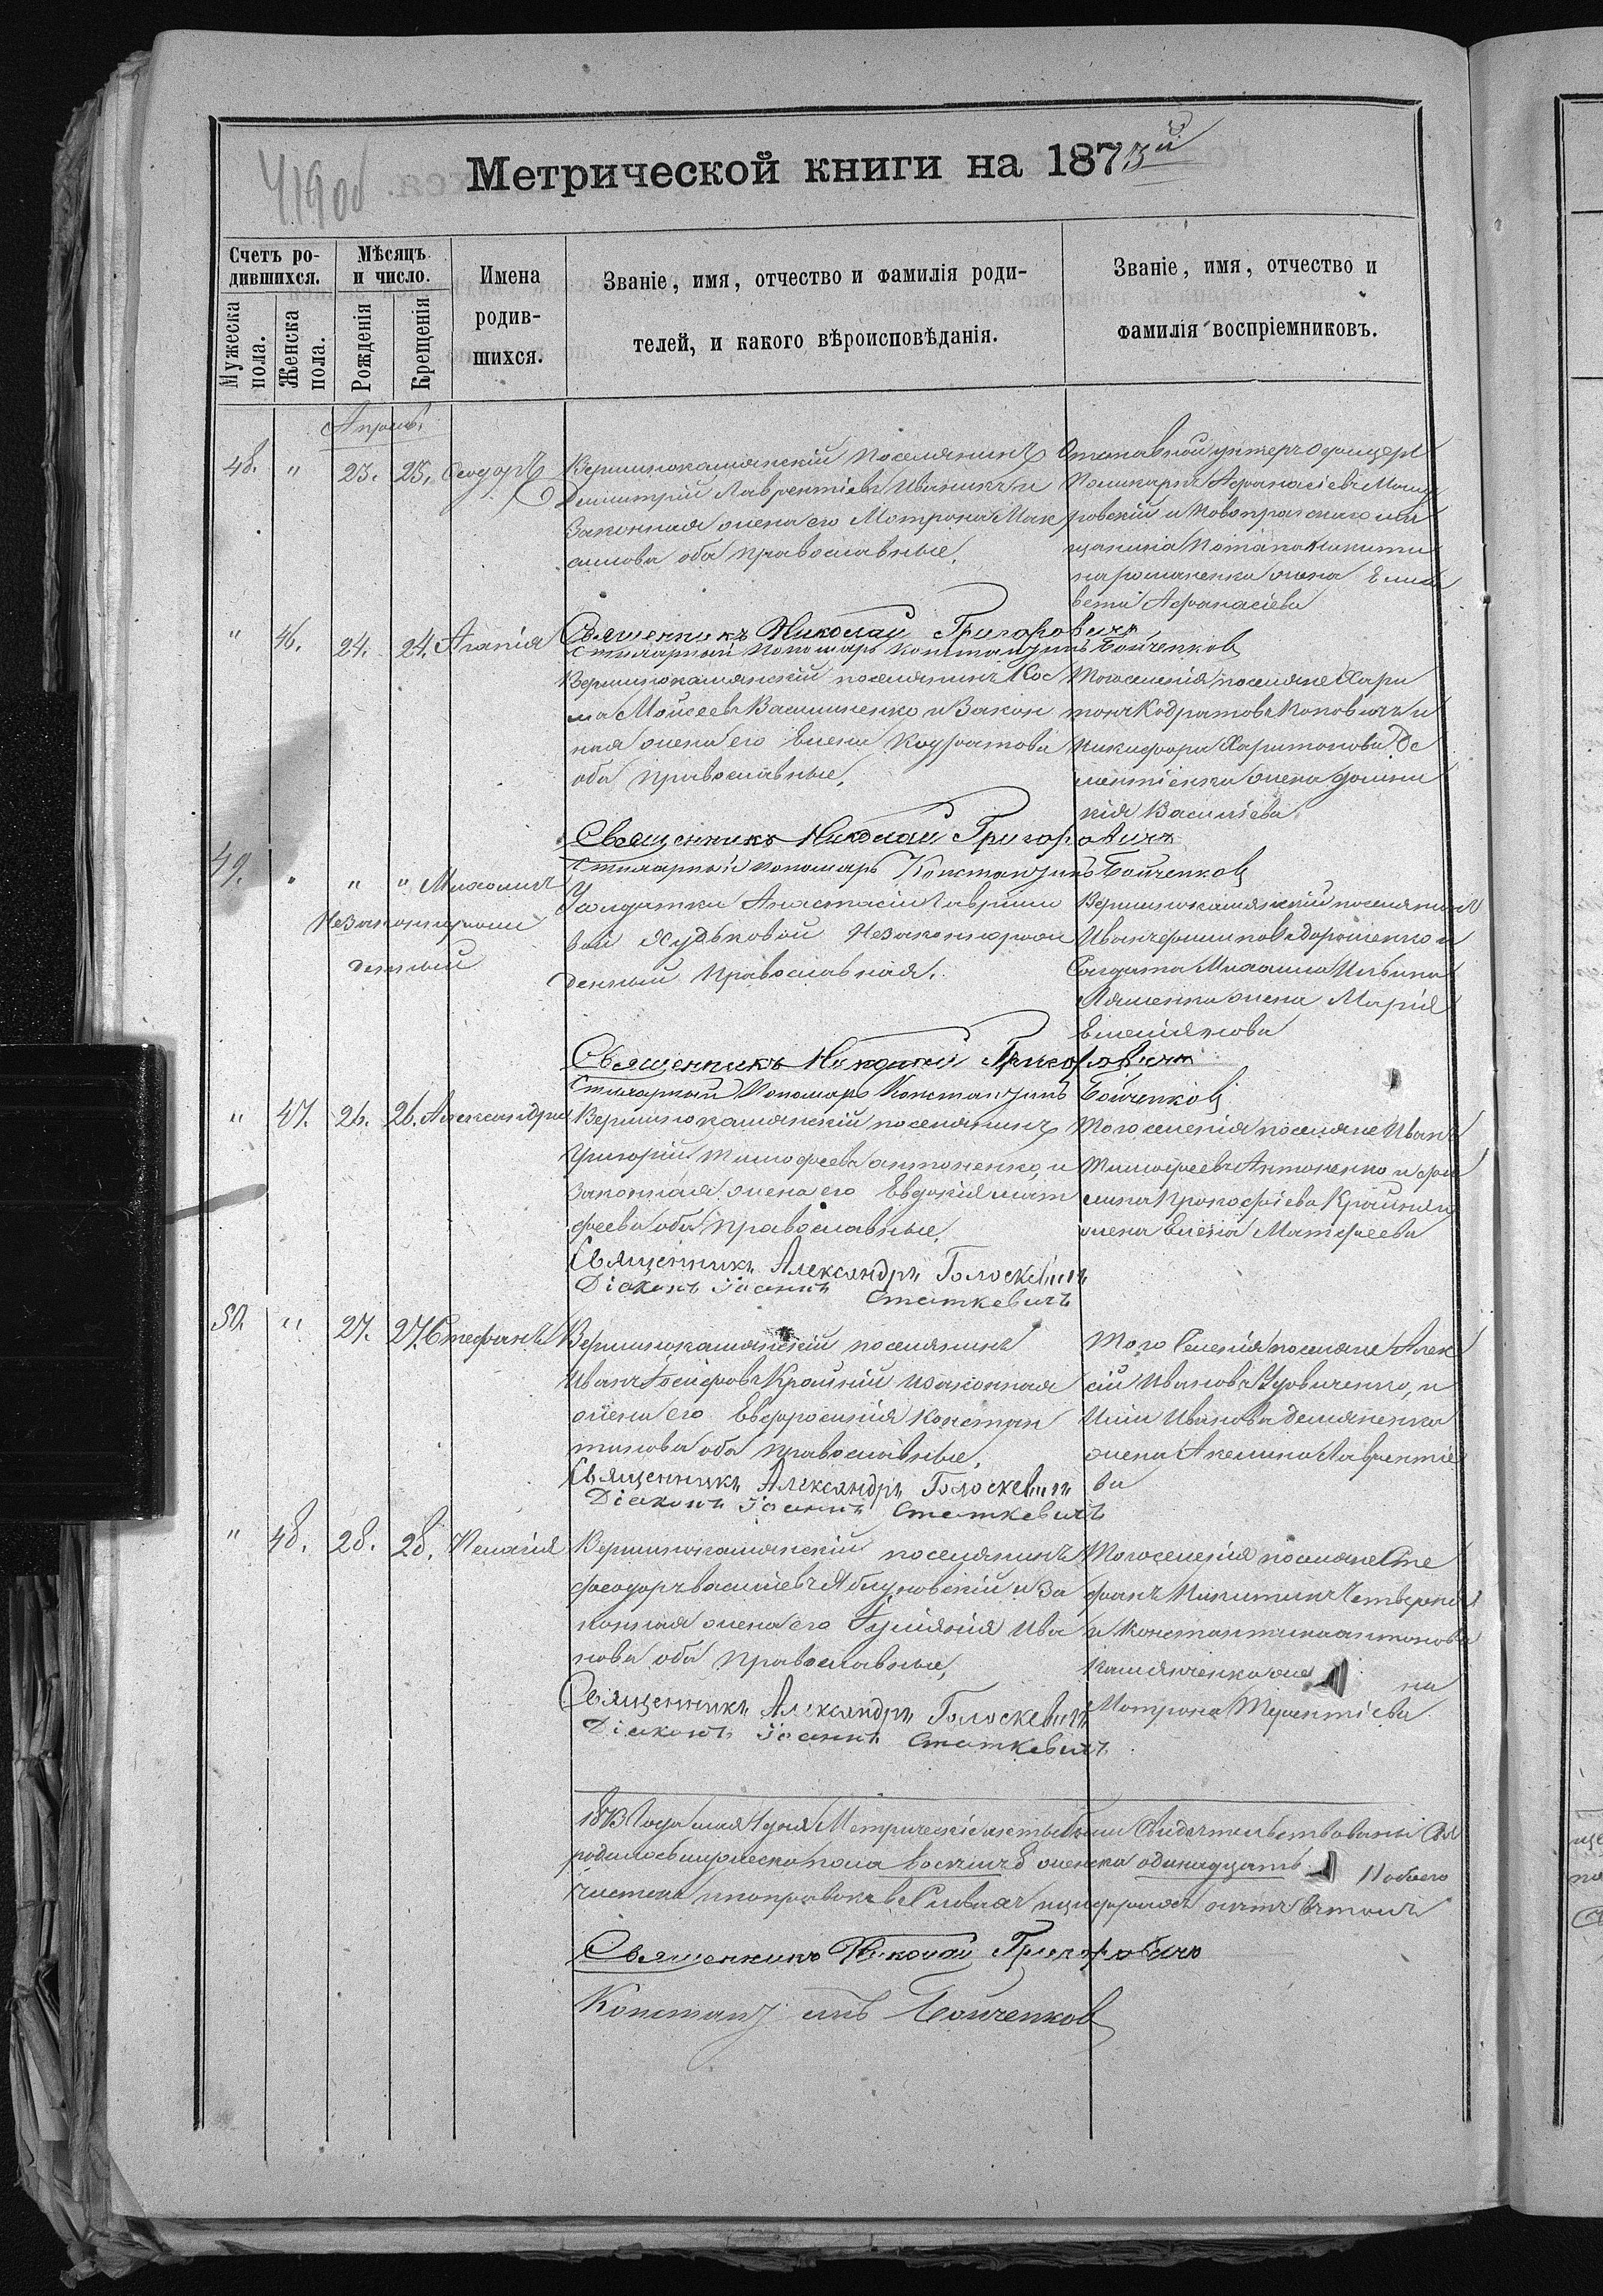 419 об
Метрической книги на 1873й
Счетъ ро-
дившихся.
Мужеска пола.
Женска пола.
Мѣсяцъ
и число.
Рожденія
Крещенія
Имена
родив-
шихся.
Званіе, имя, отчество и фамилія роди-
телей, и какого вѣроисповѣданія.
Званіе, имя, отчество и
фамилія воспріемниковъ.
Апрель.
48. " 23. 25. Феодоръ
Вершинокамянскій поселянинъ
Димитрій Лаврентіевъ Иваникъ и
Законная жена его Матрона Мак
симова оба православные.
Отставной унтеръ Офицеръ
Поликарпъ Афанасіевъ
ровскій и Новопражскаго мѣ
щанина Потапа Никити
на романенка жена Елиса
вета Афанасіева
Священникъ Николай Григоровичъ
Стихарный Пономарь Константинъ Бойченковъ
" 46. 24. 24. Агапія
Вершинокамянскій поселянинъ Кос
ма Мойсеевъ Василиненко и Закон
ная жена его Елена Кодратова
оба православные.
Того селенія поселяне Хари
тонъ Кодратовъ Коповичъ и
Никифора Харитонова Де
ментіенка жена
кія Василіева
Священникъ Николай Григоровичъ
Стихарный пономарь Константинъ Бойченковъ
49. " " " Михаилъ
Незаконнорож
денный
Солдатки Анастасіи Гаврило
вой Худьковой Незаконнорож
денный Православная.
Вершинокамянскій поселянинъ
Иванъ Филиповъ дорошенко и
Солдата Михаила Ильина
Ляшенка жена Марія
Емеліянова
Священникъ Николай Григоровичъ
Стихарный Пономарь Константинъ Бойченковъ
" 47. 26. 26. Александра
Вершинокамянскій поселянинъ
Григорій Тимофеевъ антоненко, и
Законная жена его Евдокія мат
феева оба православные.
Того селенія поселяне Иванъ
Тимофеевъ Антоненко и фи
липа Прокофіева Крайняго
жена Елена Матфеева
Священникъ Александръ Голоскевичъ
Діаконъ Іоаннъ Статкевичъ
50. " 27. 27. Стефанъ
Вершинокамянскій поселянинъ
Иванъ Іосифовъ Крайній и законная
жена его Евфросинія Констан
тинова оба православные.
Того Селенія поселяне Алек
сій Ивановъ Удовиченко, и
Ивана Демяненка
жена Акелина Лаврентіе
ва
Священникъ Александръ Голоскевичъ
Діаконъ Іоаннъ Статкевичъ
" 48. 28. 28. Пелагія
Вершинокамянскій поселянинъ
феодоръ василіевъ Яблуновскій и За
конная жена его Іуліянія Ива
нова оба православные.
Того селенія поселяне Сте
фанъ Никитинъ Четверикъ
и Константина антонова
Камянченка же на
Матрона Терентіева
Священникъ Александръ Голоскевичъ
Діаконъ Іоаннъ Статкевичъ
1873 Года мая 4 дня Метрическіе акты были Свидетельствованы
родилось мужеска пола восемь 8 женска одинадцать 11 обоего
чистокъ и поправокъ въ Словахъ и цифрахъ нетъ въ томъ
Священникъ Николай Григоровичъ
Константинъ Бойченковъ